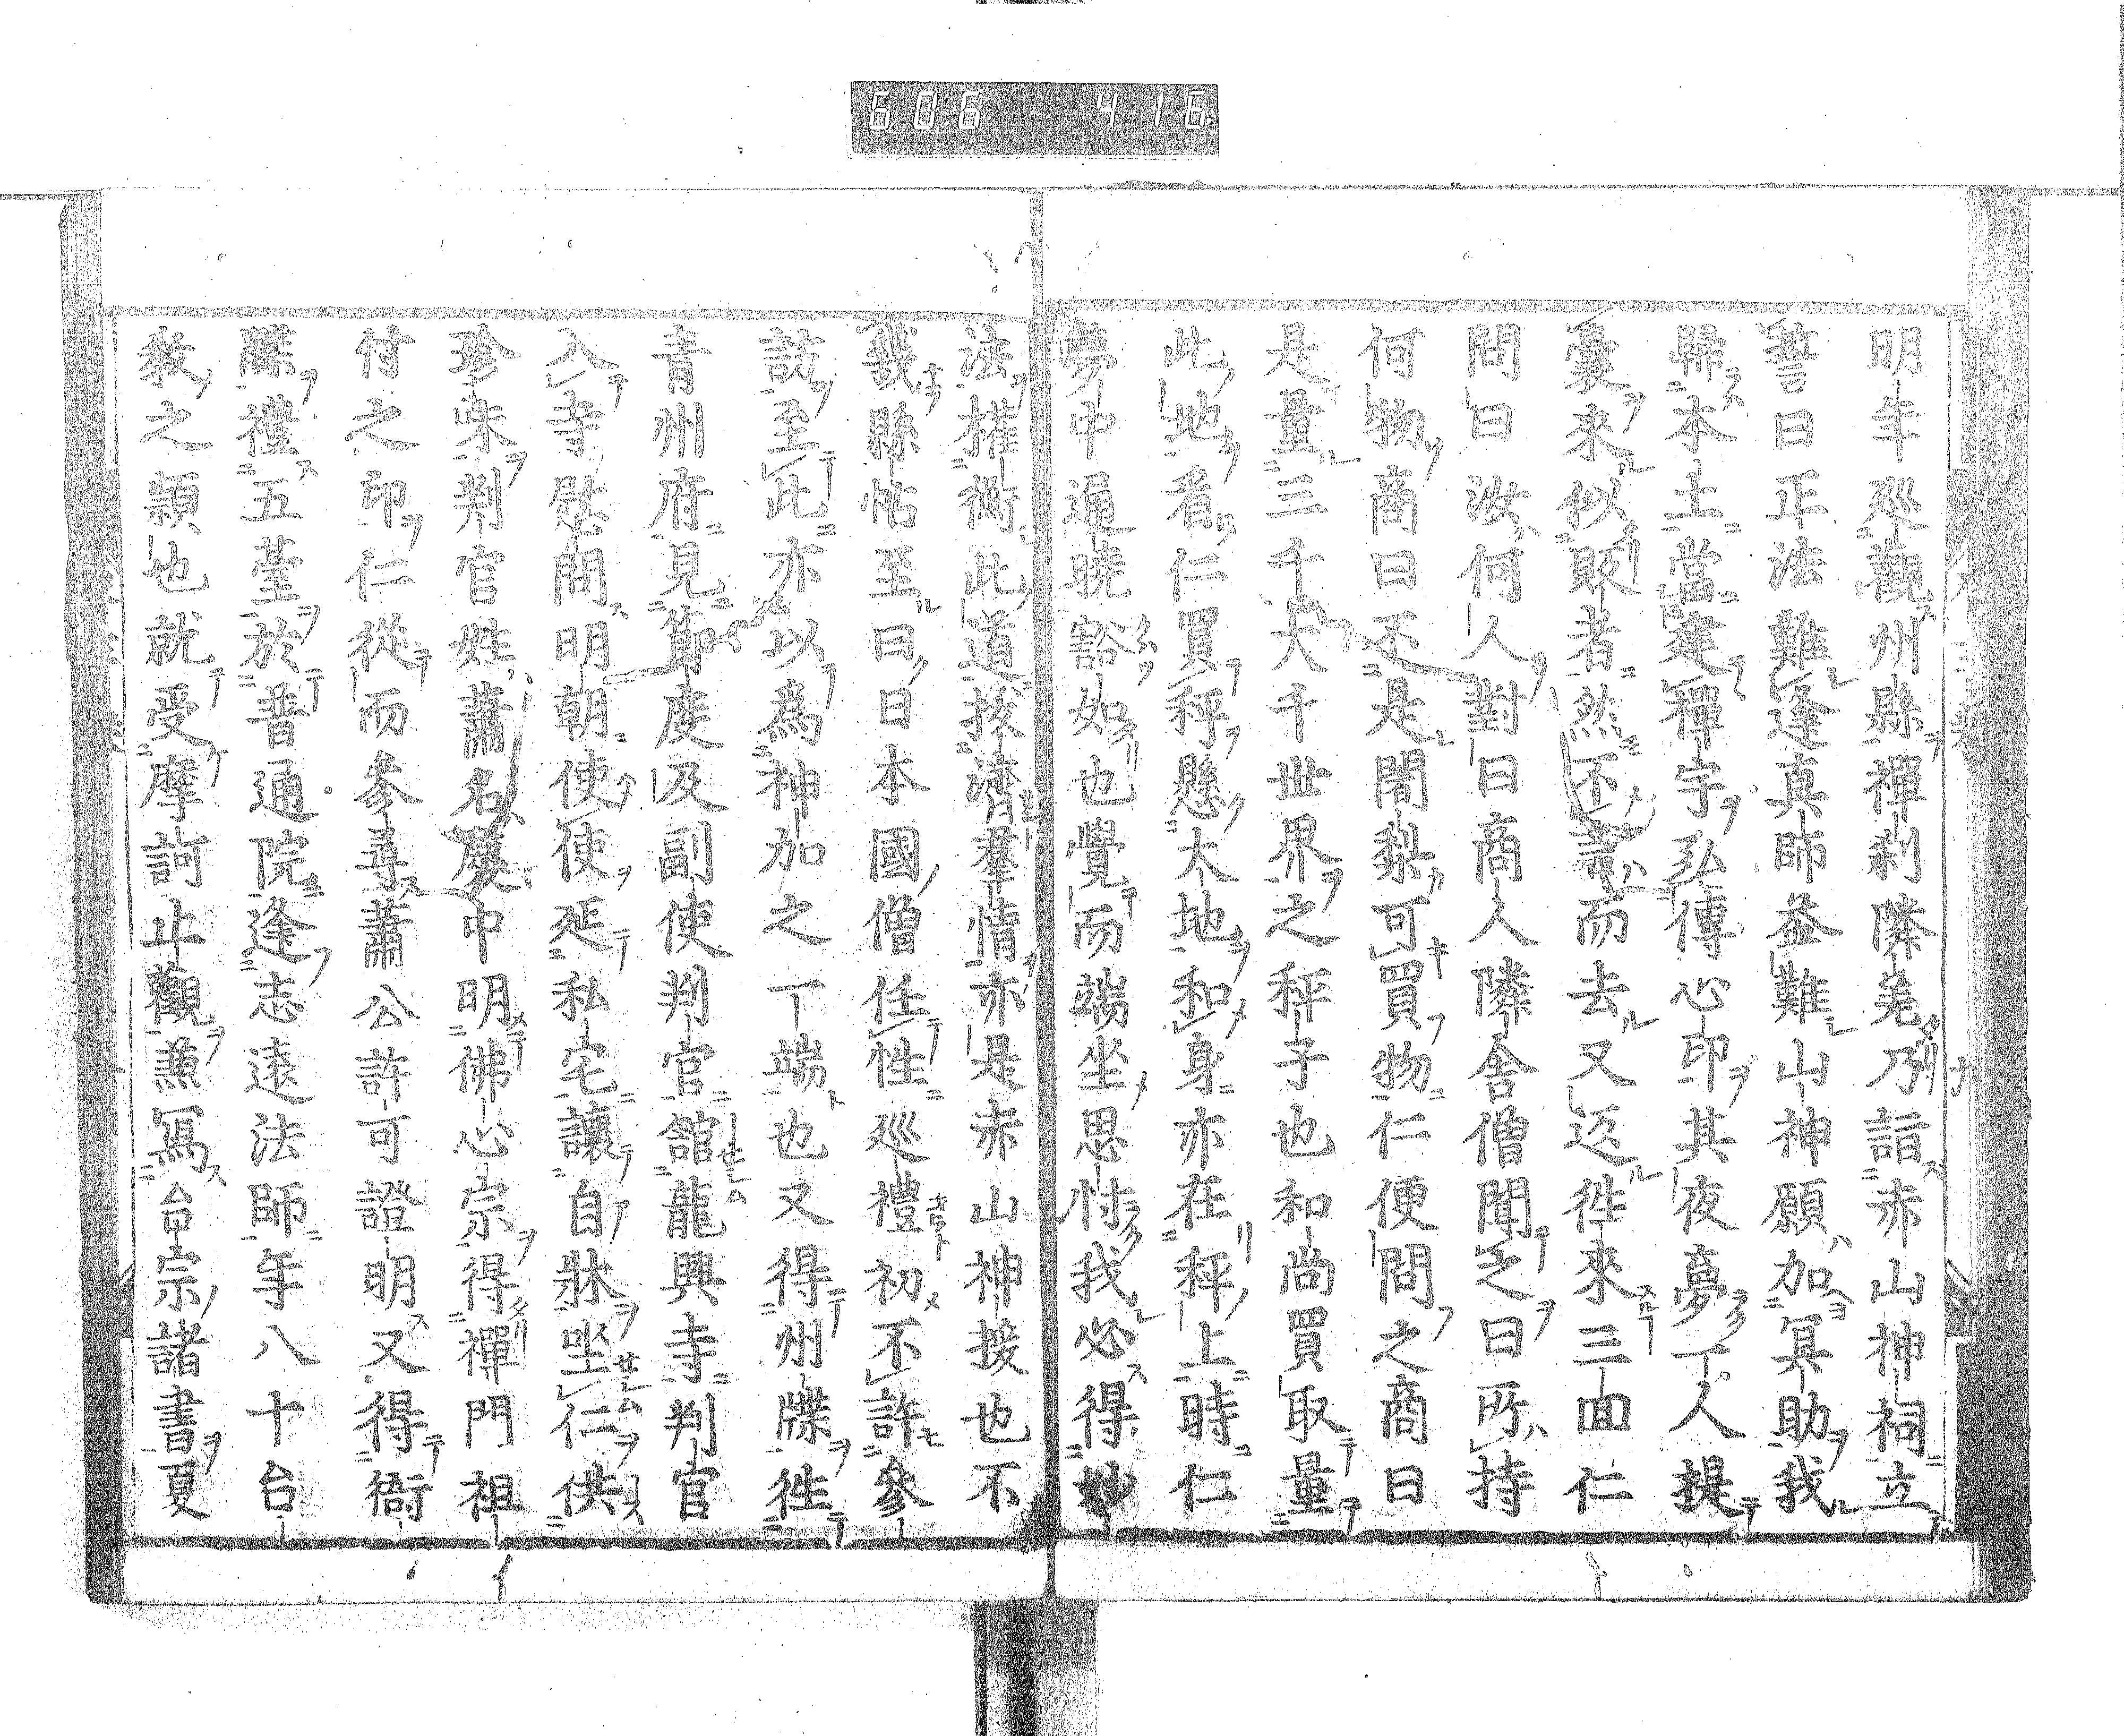 606 416
明年巡觀州縣禪刹隣菴乃詣赤山神祠立
誓曰正法難逢真師益難山神願加冥助我
歸本土當建禪宇弘傳心印其夜夢一人提
囊來似販者然不言而去又迄徃來三面仁
問曰汝何人對曰商人隣舍僧聞之曰所持
何物商曰丕是闍梨可買物仁便問之商曰
是量三千大千世界之秤子也和尚買取量
此地看仁買秤懸大地和身亦在秤上時仁
夢中通曉豁如也覺而端坐思忖我必得妙
法權衡此道拔濟羣情亦是赤山神援也不
幾縣帖至曰日本國僧任性巡禮初不許參
訪至此亦以爲神加之一端也又得州牒徃
青州府見節度及副使判官舘龍興寺判官
入寺慰問明朝使使延私宅讓自牀坐仁供
珍味判官姓蕭名慶中明佛心宗得禪門祖
付之印仁從而參尋蕭公許可證明又得衙
牒禮五臺於普通院逢志遠法師年八十台
教之頴也就受摩訶止觀兼寫台宗諸書夏